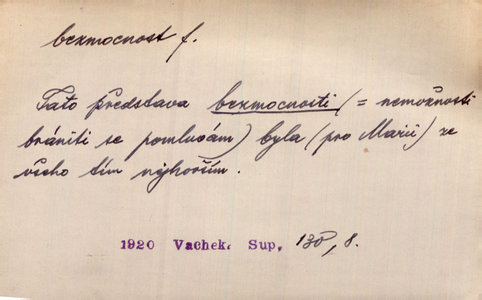 bezmocnost f.
Tato představa bezmocnosti (= nemožnosti
brániti se pomluvám) byla (pro Marii) ze
všeho tím nejhorším.
1920 Vachek. Sup, 130, 8.